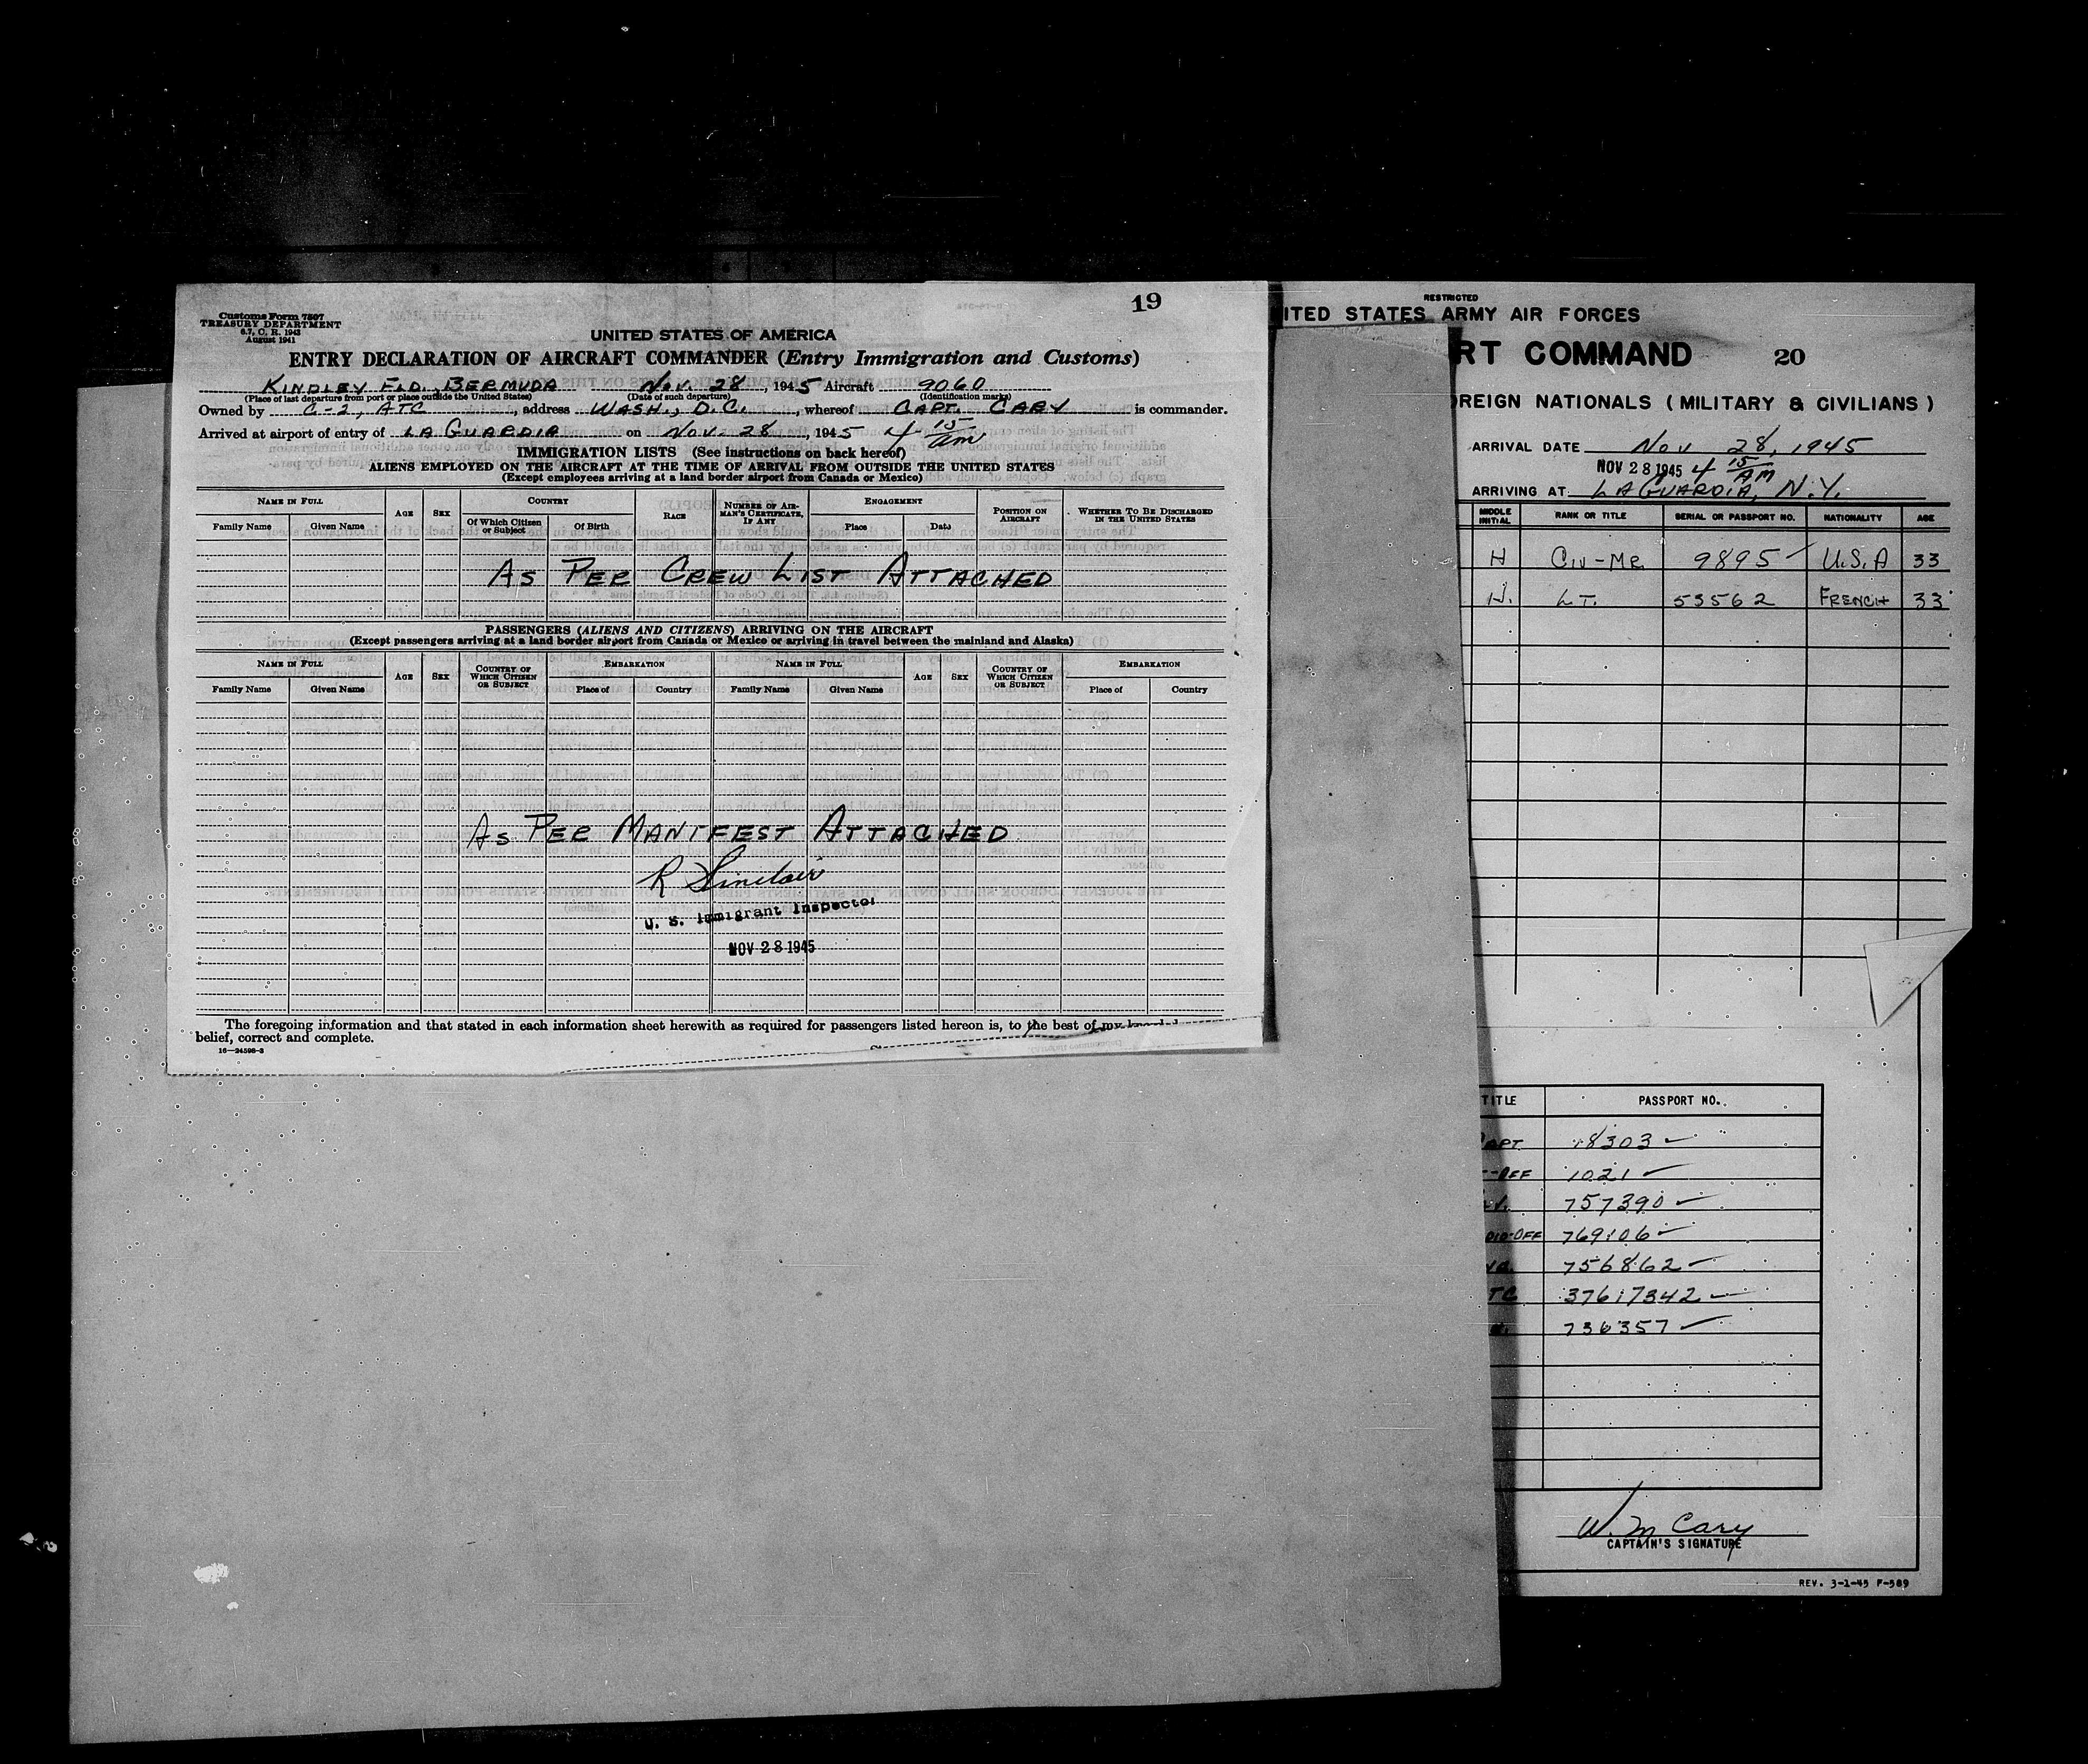 19
Customs Form 7507
TREASURY DEPARTMENT
6.7, C. R. 1943
August 1941
UNITED STATES OF AMERICA
ENTRY DECLARATION OF AIRCRAFT COMMANDER (Entry Immigration and Customs)
KINDLEY FLD., BERMUDA NOV. 28, 1945 Aircraft 9060
(Place of last departure from port or place outside the United States) (Date of such departure) (Identification marks)
Owned by C-2, ATC, address WASH., D.C., whereof CAPT. CARY is commander.
Arrived at airport of entry of LA GUARDIA on NOV. 28, 1945 4 15 am
IMMIGRATION LISTS (See instructions on back hereof)
ALIENS EMPLOYED ON THE AIRCRAFT AT THE TIME OF ARRIVAL FROM OUTSIDE THE UNITED STATES
(Except employees arriving at a land border airport from Canada or Mexico)
NAME IN FULL AGE SEX COUNTRY RACE NUMBER OF AIRMAN'S CERTIFICATE, IF ANY ENGAGEMENT POSITION ON AIRCRAFT WHETHER TO BE DISCHARGED IN THE UNITED STATES
Family Name Given Name Of Which Citizen or Subject Of Birth Place Date
AS PER CREW LIST ATTACHED
PASSENGERS (ALIENS AND CITIZENS) ARRIVING ON THE AIRCRAFT
(Except passengers arriving at a land border airport from Canada or Mexico or arriving in travel between the mainland and Alaska)
NAME IN FULL AGE SEX COUNTRY OF WHICH CITIZEN OR SUBJECT EMBARKATION NAME IN FULL AGE SEX COUNTRY OF WHICH CITIZEN OR SUBJECT EMBARKATION
Family Name Given Name Place of Country Family Name Given Name Place of Country
AS PER MANIFEST ATTACHED
R Sinclair
U. S. Immigrant Inspector
NOV 28 1945
The foregoing information and that stated in each information sheet herewith as required for passengers listed hereon is, to the best of my
belief, correct and complete.
16—24598-3
RESTRICTED
ITED STATES ARMY AIR FORCES
RT COMMAND 20
OREIGN NATIONALS (MILITARY & CIVILIANS)
ARRIVAL DATE Nov 28, 1945
NOV 28 1945 4 15 AM
ARRIVING AT LA GUARDIA, N.Y.
MIDDLE INITIAL RANK OR TITLE SERIAL OR PASSPORT NO. NATIONALITY AGE
H CIV-MR. 9895 U.S.A 33
H. LT. 53562 FRENCH 33
TITLE PASSPORT NO.
APT 18303
-OFF 1021
757390
DIO-OFF 769106
756862
TC 37617342
736357
W. M Cary
CAPTAIN'S SIGNATURE
REV. 3-1-45 F-589